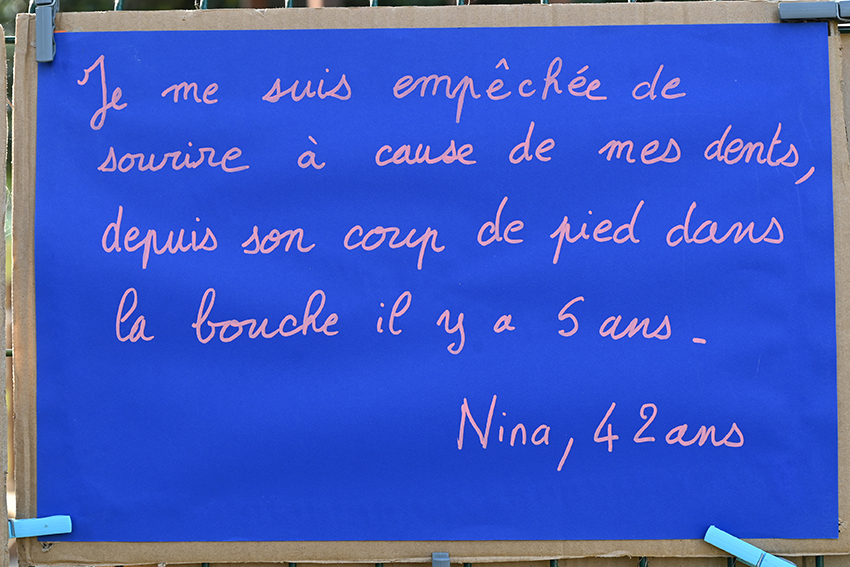 Je me suis empêchée de
sourire à cause de mes dents,
depuis son coup de pied dans
la bouche il y a 5 ans.
Nina, 42 ans